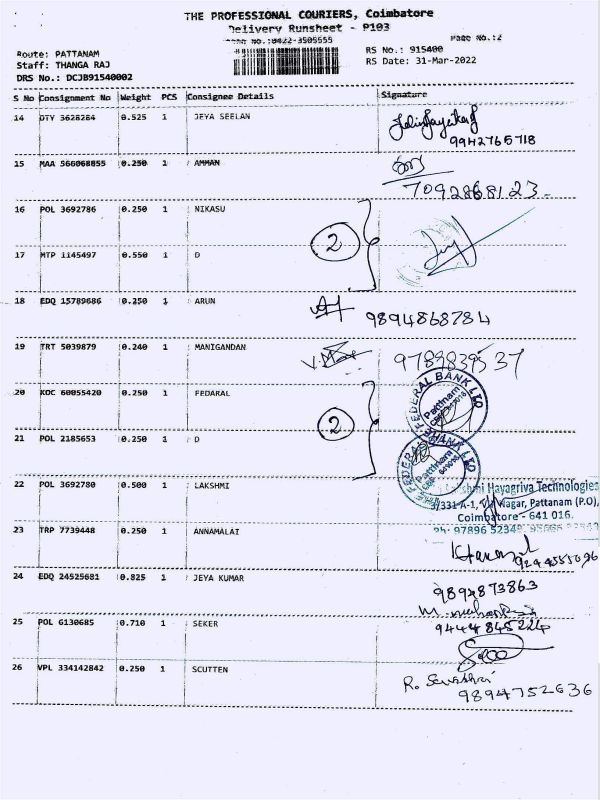 THE PROFESSIONAL COURIERS, Coimbatore
Delivery Runsheet - P103
Phone No.:0422-3505555 Page No.:2
Route: PATTANAM RS No.: 915400
Staff: THANGA RAJ RS Date: 31-Mar-2022
DRS No.: DCJB91540002
S No Consignment No Weight PCS Consignee Details Signature
14 DTY 3628284 0.525 1 JEYA SEELAN
9942765718
15 MAA 566068855 0.250 1 AMMAN
7092868123
16 POL 3692786 0.250 1 NIKASU
2
17 MTP 1145497 0.550 1 D
18 EDQ 15789686 0.250 1 ARUN
9894868784
19 TRT 5039879 0.240 1 MANIGANDAN
9789839537
20 KOC 60055420 0.250 1 FEDARAL
FEDERAL BANK LTD
Pattinam
2
21 POL 2185653 0.250 1 D
FEDERAL BANK LTD
Pattinam
22 POL 3692780 0.500 1 LAKSHMI
Hayagriva Technologies
3/331-A-1, Nagar, Pattanam (P.O),
Coimbatore - 641 016.
Ph: 97896 52349
23 TRP 7739448 0.250 1 ANNAMALAI
24 EDQ 24525681 0.825 1 JEYA KUMAR
9894873863
25 POL 6130685 0.710 1 SEKER
9444845224
26 VPL 334142842 0.250 1 SCUTTEN
9894752636